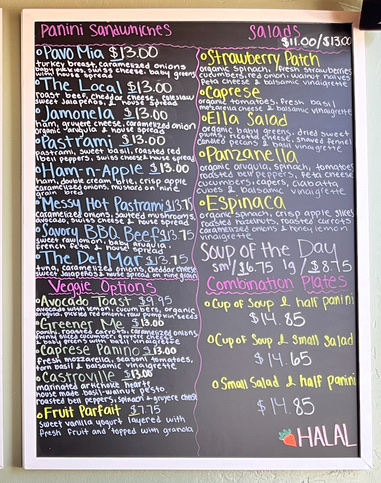 Panini Sandwhiches
Pavo Mia $13.00
turkey breast, caramelized onions
swiss cheese, baby greens
with house spread
The Local $13.00
roast beef, cheddar cheese,
sweet Jalapeños, & house spread
Jamonela $13.00
ham, gruyere cheese, caramelized onion
organic arugula & house spread
Pastrami $13.00
pastrami, sweet basil, roasted red
bell peppers, swiss cheese & house spread
Ham-n-Apple $13.00
ham, double cream brie, crisp apple
caramelized onions, mustard on nine
grain bread
Messy Hot Pastrami $13.75
caramelized onions, sauteed mushrooms,
avocado, swiss cheese & house spread
Savory BBQ Beef $13.75
sweet onion, baby arugula,
french feta & house spread
The Del Mar $13.75
tuna, caramelized onions, cheddar cheese
sweet Jalapeños & house spread on nine grain
Veggie Options
Avocado Toast $9.95
avocado with lemon, cucumbers, organic
arugula, pickled red onions, raw pump kin seeds
Greener Me $13.00
roasted carrots, caramelized onions,
cucumbers, gruyere cheese
& baby greens with basil vinaigrette
Caprese Panino $13.00
fresh mozzarella, season tomatoes,
torn basil & balsamic vinaigrette
Castroville $13.00
marinated artichoke hearts
house made basil-walnut pesto
roasted bell peppers, spinach & gruyere cheese
Fruit Parfait $7.75
sweet vanilla yogurt layered with
fresh fruit and topped with granola
Salads
$11.00/$13.00
Strawberry Patch
organic spinach, fresh strawberries
cucumbers, red onion, walnut halves
feta cheese & balsamic vinaigrette
Caprese
organic tomatoes, fresh basil
mozzarella cheese & balsamic vinaigrette
Ella Salad
organic baby greens, dried sweet
plums, ricotta cheese, shaved fennel
candied pecans & basil vinaigrette
Panzanella
organic arugula, spinach, tomatoes
roasted bell peppers, feta cheese
cucumbers, capers, ciabatta
cubes & balsamic vinaigrette
Espinaca
organic spinach, crisp apple slices
roasted hazelnuts, roasted carrots
caramelized onions & honey lemon
vinaigrette
Soup of the Day
sm/$6.75 lg/$8.75
Combination Plates
Cup of Soup & half panini
$14.85
Cup of Soup & Small Salad
$14.65
Small Salad & half panini
$14.85
HALAL